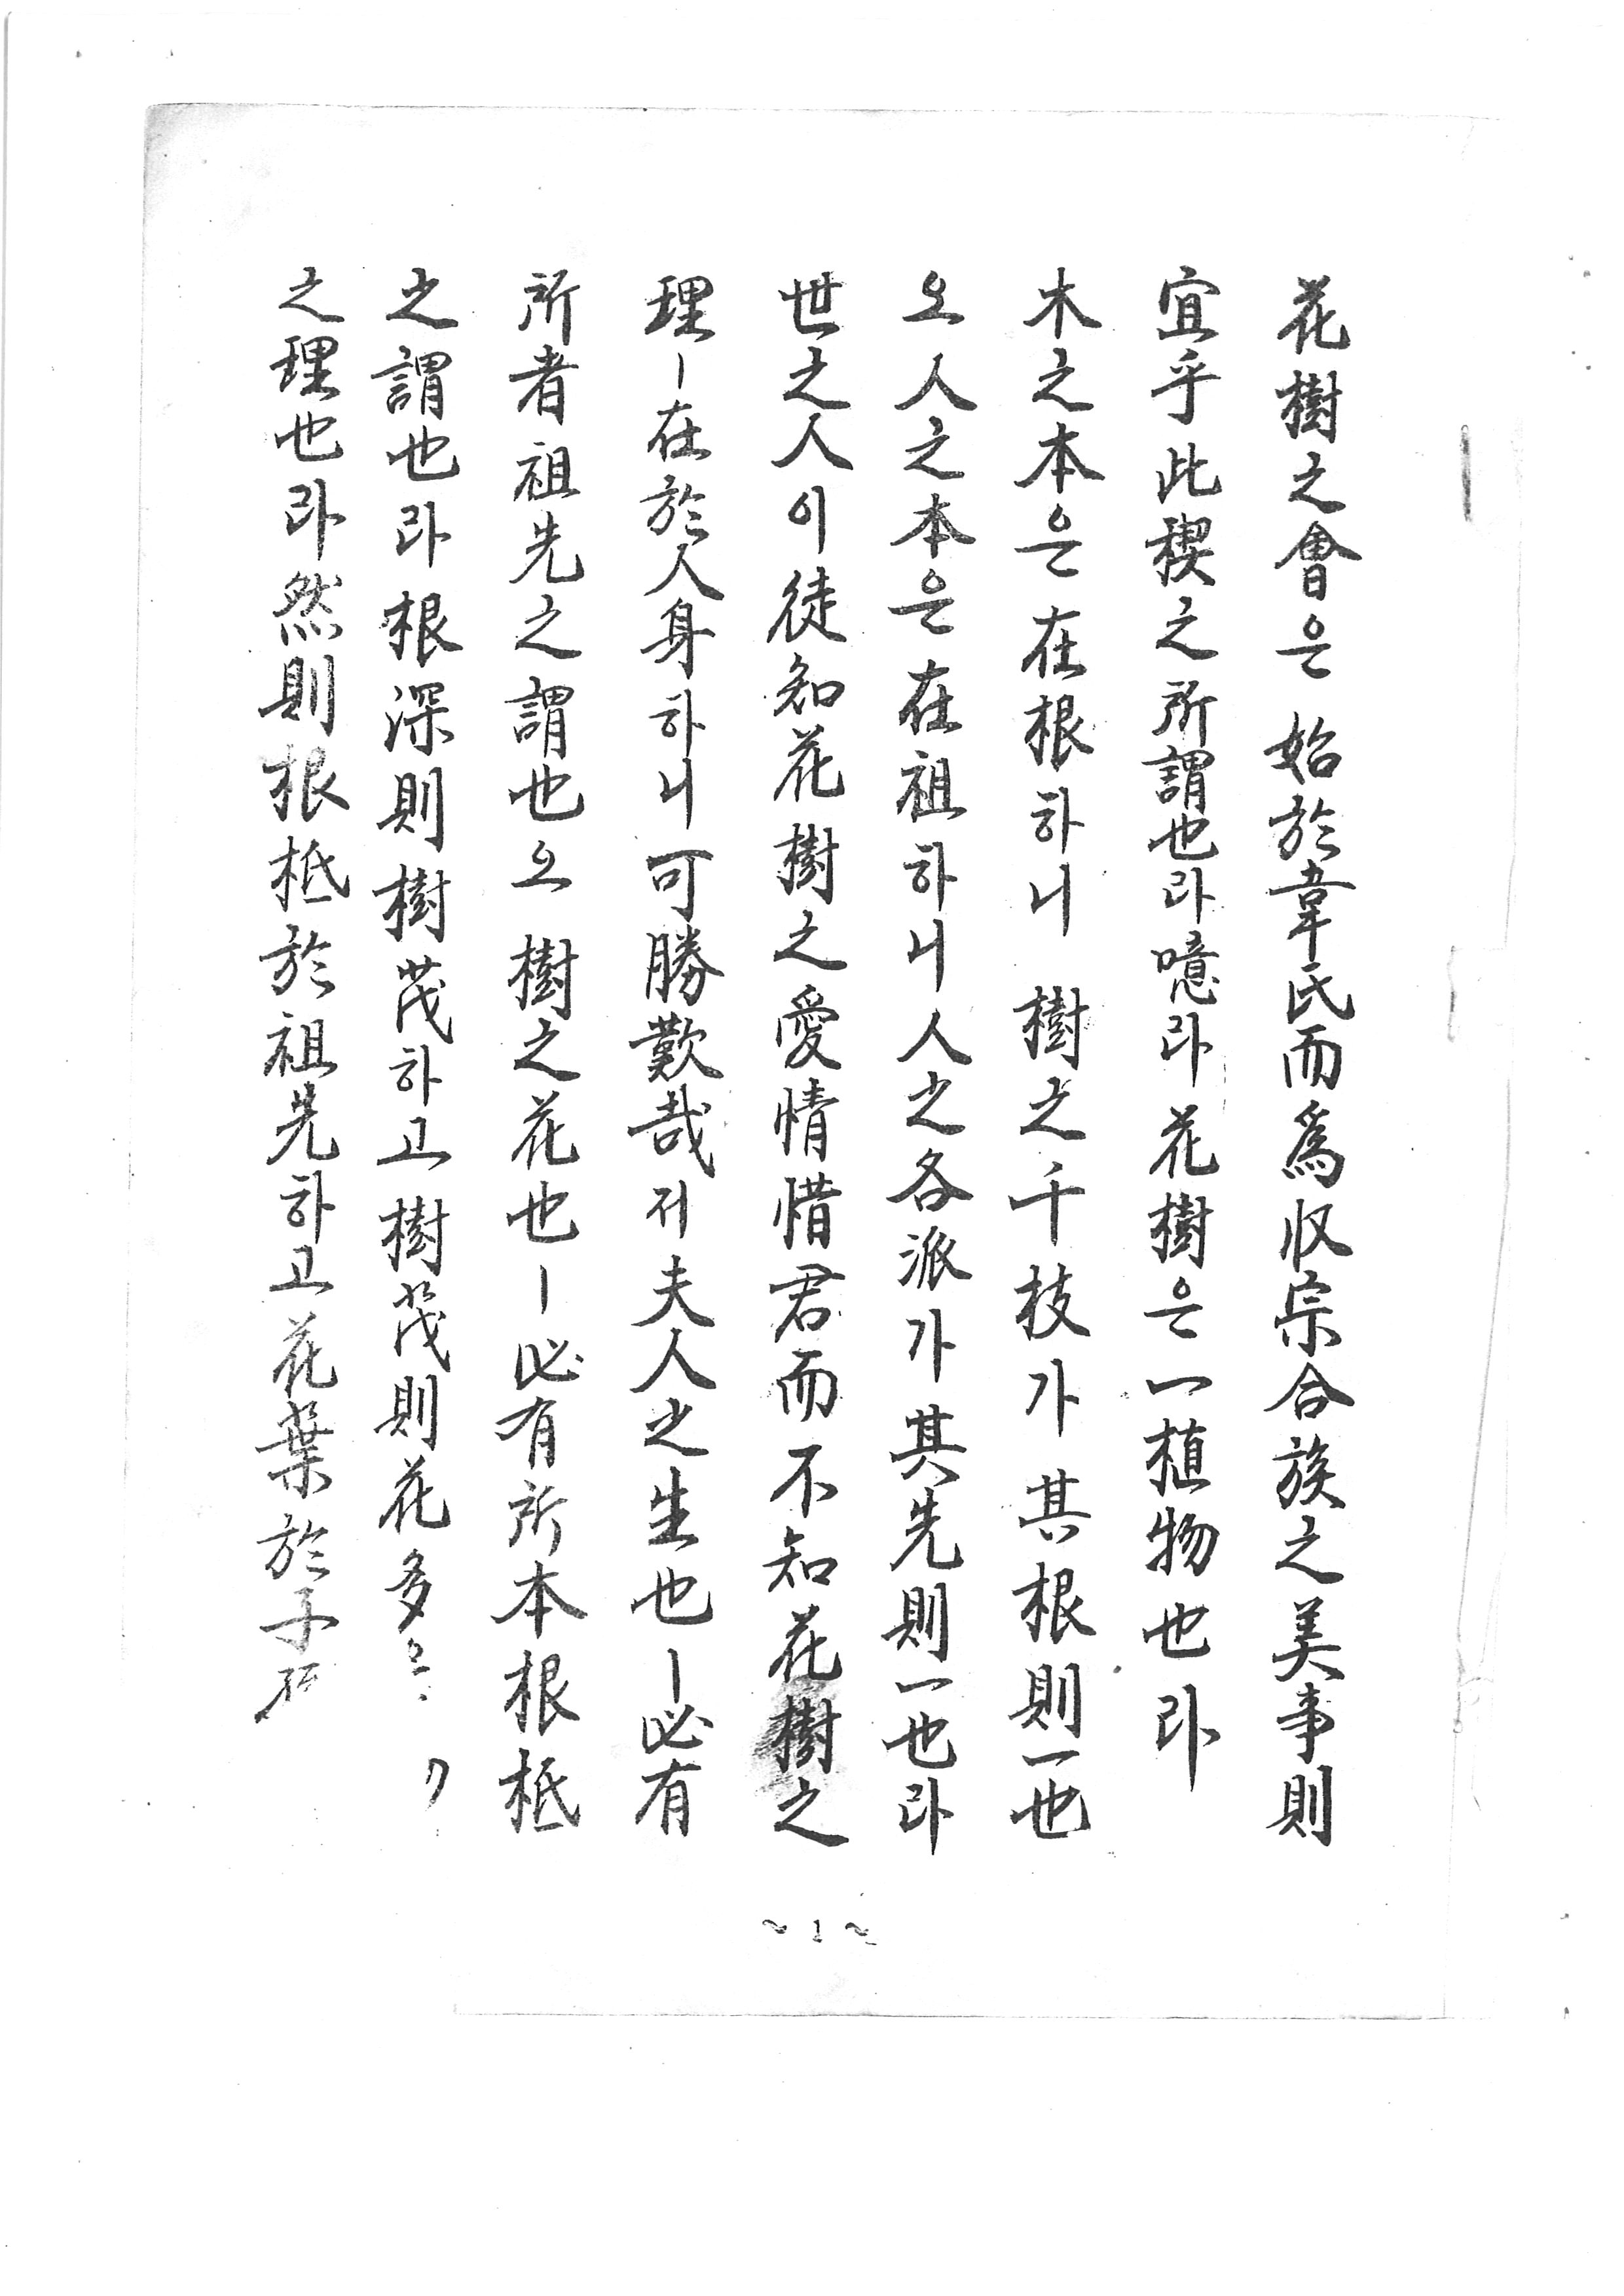 花樹之會은 始於韋氏而爲收宗合族之美事則
宜乎此稧之所謂也라噫라花樹은一植物也라
木之本은在根하니 樹之千技가其根則一也
오人之本은在祖하니人之各派가其先則一也라
世之人이徒知花樹之愛情惜君而不知花樹之
理ㅣ在於人身하니可勝歎哉저夫人之生也ㅣ必有
所者祖先之謂也오 樹之花也ㅣ必有所本根柢
之謂也라根深則樹茂하고樹茂則花多
之理也라然則根柢於祖先하고花葉於子
~1~